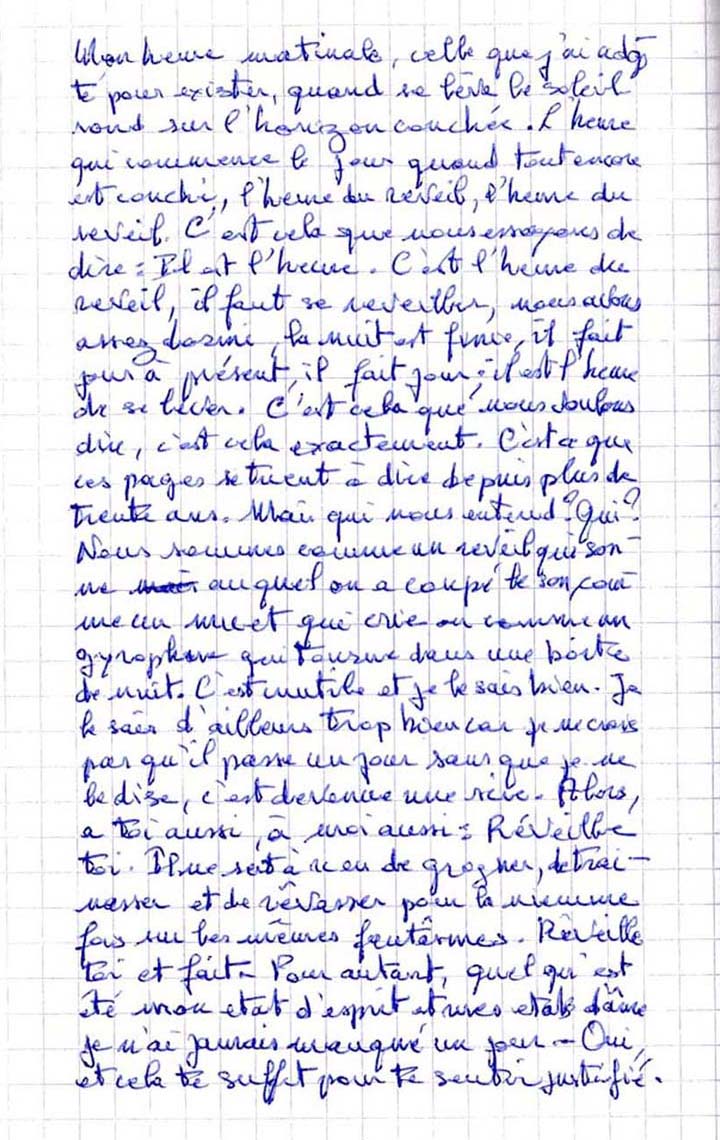 Mon heure matinale, celle que j'ai adop
té pour exister, quand se lève le soleil
rond sur l'horizon couchée. L'heure
qui commence le jour quand tout encore
est couché, l'heure du réveil, l'heure du
reveil. C'est cela que nous essayons de
dire : Il est l'heure. C'est l'heure du
reveil, il faut se reveiller, nous avons
assez dormi, la nuit est finie, il fait
jour à présent, il fait jour, il est l'heure
de se lever. C'est cela que nous voulons
dire, c'est cela exactement. C'est ce que
ces pages se tuent à dire depuis plus de
trente ans. Mais qui nous entend ? Qui ?
Nous sommes comme un reveil qui son-
ne auquel on a coupé le son, com
me un muet qui crie ou comme un
gyrophare qui tourne dans une boîte
de nuit. C'est inutile et je le sais bien. Je
le sais d'ailleurs trop bien car je ne crois
pas qu'il passe un jour sans que je ne
le dise, c'est devenue une scie. Alors,
a toi aussi, à moi aussi : Réveille
toi. Il ne sert à rien de grogner, de trai-
nasser et de rêvasser pour la nieme
fois sur les mêmes fantômes. Réveille
toi et fait. Pour autant, quel qu'est
été mon etat d'esprit et mes etats d'âme
je n'ai jamais manqué un jour - Oui,
et cela te suffit pour te sentir justifié.